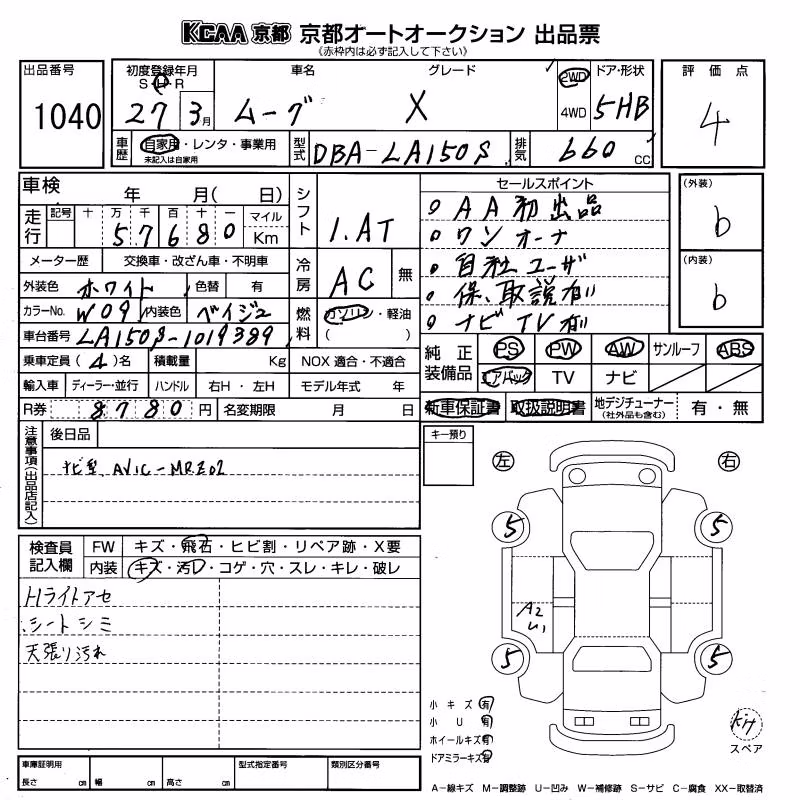 KCAA 京都 京都オートオークション 出品票
《赤枠内は必ず記入して下さい》
出品番号 初度登録年月 車名 グレード ドア・形状 評価点
S・H・R
1040 27 3月 ムーヴ X 2WD 4WD 5HB 4
車歴 自家用・レンタ・事業用 未記入は自家用 型式 DBA-LA150S 排気 660 cc
車検 年 月( 日) シフト 1.AT セールスポイント (外装)
走行 記号 十 万 千 百 十 一 マイル 。AA初出品 b
5 7 6 8 0 Km 。ワンオーナ
メーター歴 交換車・改ざん車・不明車 冷房 AC 無 。自社ユーザ (内装)
外装色 ホワイト 色替 有 。保、取説有 b
カラーNo. W09 内装色 ベイジュ 燃料 ガソリン・軽油 ( ) 。ナビTV有
車台番号 LA150S-1019389
乗車定員 (4)名 積載量 Kg NOX 適合・不適合 純正装備品 PS PW AW サンルーフ ABS
輸入車 ディーラー・並行 ハンドル 右H・左H モデル年式 年 エアバック TV ナビ
R券 8780円 名変期限 月 日 新車保証書 取扱説明書 地デジチューナー (社外品も含む) 有・無
注意事項(出品店記入) 後日品 キー預り
ナビ型 AVIC-MRZ02 左 右
5 5
検査員記入欄 FW キズ・飛石・ヒビ割・リペア跡・X要
内装 キズ・汚レ・コゲ・穴・スレ・キレ・破レ
Hライトアセ A2
シートシミ U1
天張り汚れ 5 5
小キズ有
小U有
ホイールキズ有
ドアミラーキズ有
キット
スペア
車庫証明用 長さ cm 幅 cm 高さ cm 型式指定番号 類別区分番号
A-線キズ M-調整跡 U-凹み W-補修跡 S-サビ C-腐食 XX-取替済